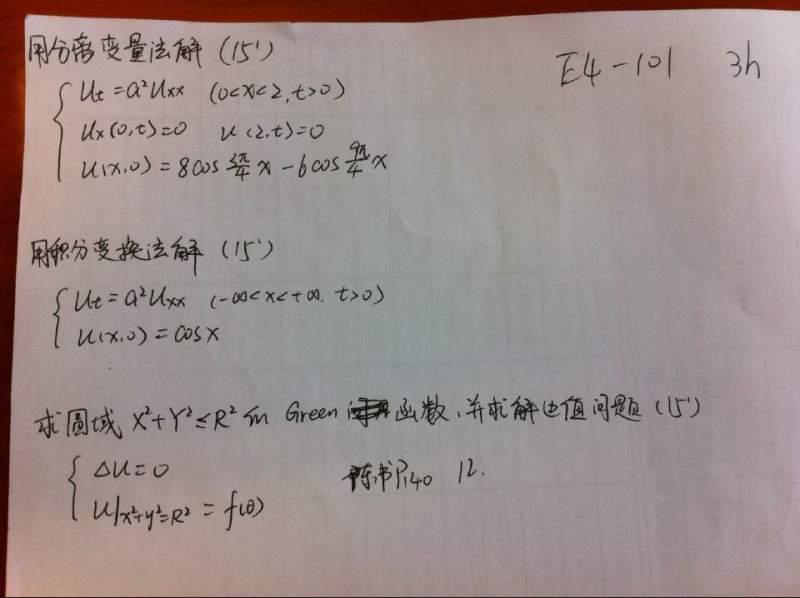 用分离变量法解 (15')
E4-101 3h
Ut = a²Uxx (0<x<2, t>0)
Ux(0,t)=0 u(2,t)=0
u(x,0) = 8cos 3π/4 x - 6cos 9π/4 x
用积分变换法解 (15')
Ut = a²Uxx (-∞<x<+∞, t>0)
u(x,0) = cosx
求圆域 X²+Y²≤R² 的 Green 函数,并求解边值问题 (15')
ΔU=0
陈书P140 12.
U|x²+y²=R² = f(θ)